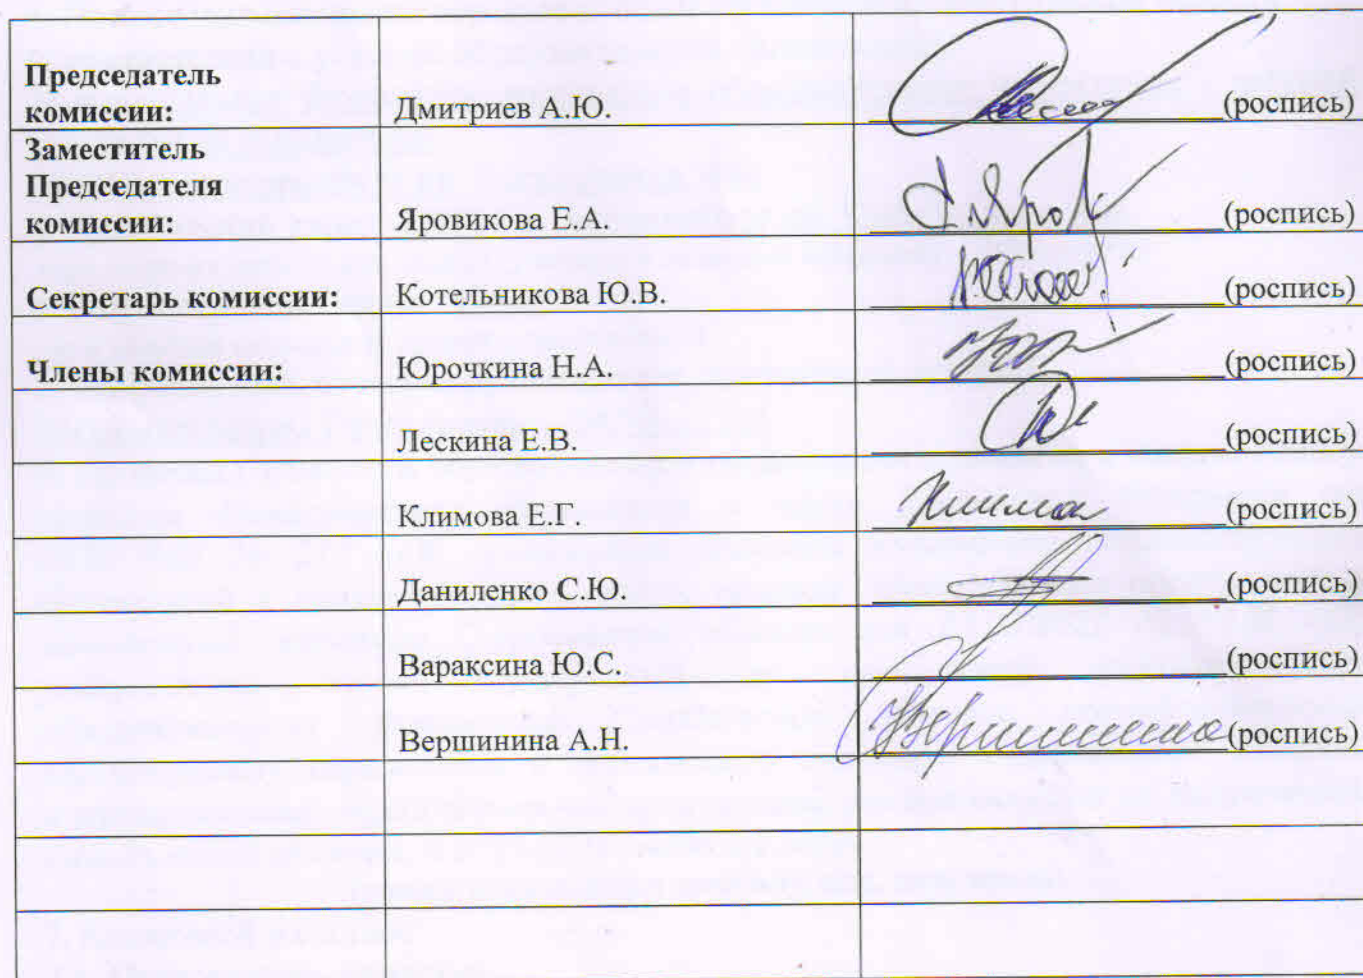 Председатель
комиссии: Дмитриев А.Ю. (роспись)
Заместитель
Председателя
комиссии: Яровикова Е.А. (роспись)
Секретарь комиссии: Котельникова Ю.В. (роспись)
Члены комиссии: Юрочкина Н.А. (роспись)
Лескина Е.В. (роспись)
Климова Е.Г. (роспись)
Даниленко С.Ю. (роспись)
Вараксина Ю.С. (роспись)
Вершинина А.Н. (роспись)